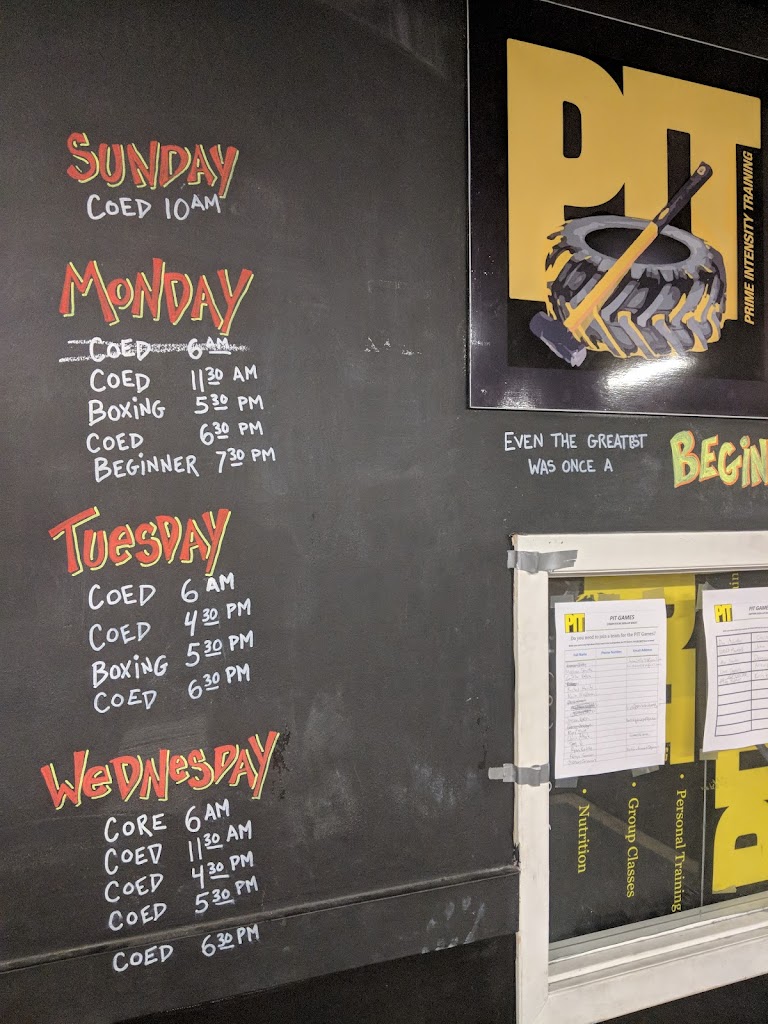 SUNDAY
COED 10AM
MONDAY
COED 6AM
COED 11 30 AM
BOXING 5 30 PM
COED 6 30 PM
BEGINNER 7 30 PM
TUESDAY
COED 6 AM
COED 4 30 PM
BOXING 5 30 PM
COED 6 30 PM
WEDNESDAY
CORE 6 AM
COED 11 30 AM
COED 4 30 PM
COED 5 30 PM
COED 6 30 PM
PIT
PRIME INTENSITY TRAINING
EVEN THE GREATEST
WAS ONCE A
BEGIN
PIT
PIT GAMES
Do you need to join a team for the PIT Games?
PIT
PIT GAME
• Personal Training
• Group Classes
• Nutrition